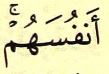 أَنفُسَهُمْۚ